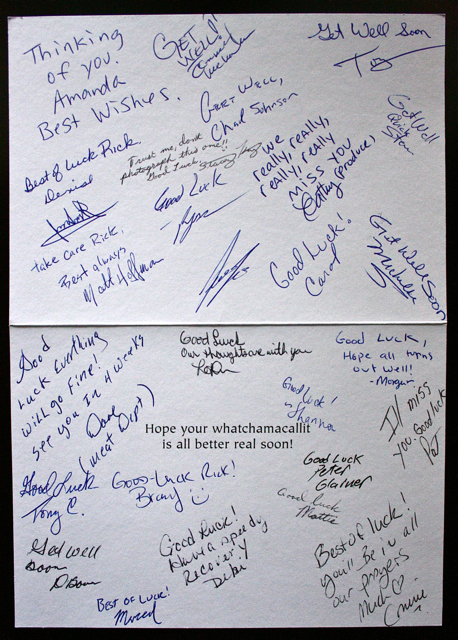 Thinking
of you.
Amanda
Best Wishes.
GET
WELL!!
Get Well Soon
GEET WELL,
Chad Johnson
Get Well
Quick
Best of Luck Rick.
Denise
Trust me, don't
photograph this one!!
Good Luck.
Good Luck
We
really, really,
really, really
miss you
Cathy (produce)
Take care Rick.
Best always
Matt Hoffman
Good Luck!
Carol
Get Well Soon
Michelle
Good
Luck Everything
will go fine!
see you in 4 weeks
Dave
(meat Dept)
Good Luck
Our thoughts are with you
Good Luck,
Hope all turns
out well!
-Morgan
Good luck!
Shanna
I'll miss
you. Good luck
Pat
Hope your whatchamacallit
is all better real soon!
Good Luck
Tony C.
Good-Luck Rick!
Brandy
Good Luck
Peter
Good Luck
Mattie
Get well
Soon
Good Luck!
Have a speedy
Recovery
Best of luck!
you'll be in all
our prayers
Much ♡
Connie
Best of Luck!